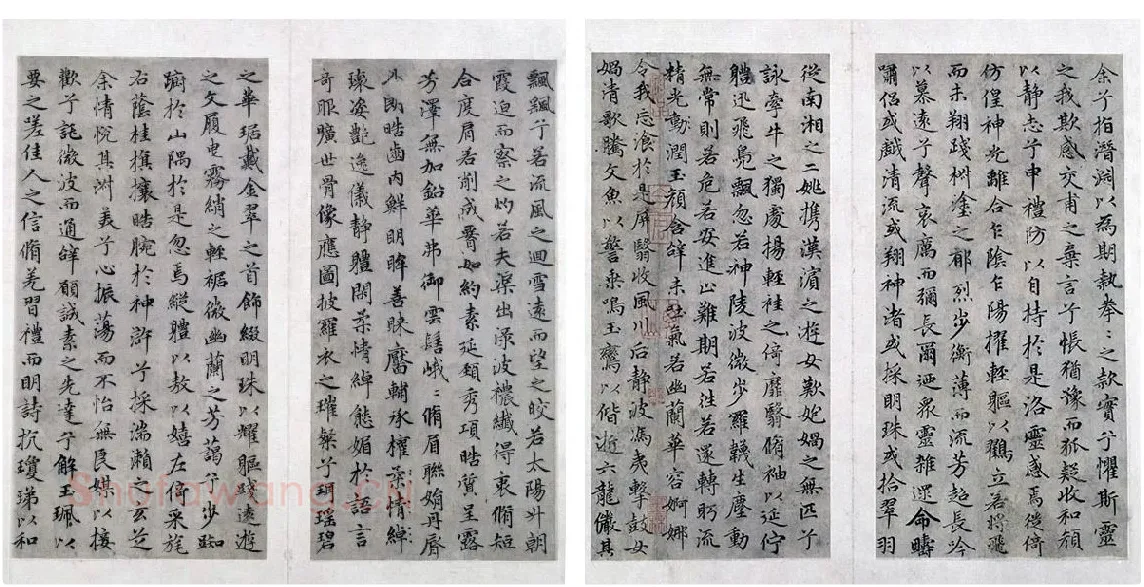 飄颻兮若流風之迴雪遠而望之皎若太陽升朝
霞迫而察之灼若夫渠出淥波穠纖得衷脩短
合度肩若削成如約素延頸秀項晧質呈露
芳澤無加鉛華弗御雲髻峨〻脩眉聯娟丹脣
外朗晧齒內鮮明眸善睞靨輔承權柔情綽
瓌姿艷逸儀靜體閑柔情綽態媚於語言
奇服曠世骨像應圖披羅衣之璀粲兮珥瑤碧
之華琚戴金翠之首飾綴明珠以耀軀踐遠遊
之文履曳霧綃之輕裾微幽蘭之芳藹兮步踟
躕於山隅於是忽焉縱體以敖以嬉左倚采旄
右蔭桂旗攘晧腕於神滸兮採湍瀨之玄芝
余情悅其淑美兮心振蕩而不怡無良媒以接
歡兮託微波而通辭願誠素之先達兮解玉珮以
要之嗟佳人之信脩羌習禮而明詩抗瓊珶以和
余兮指潛淵以為期執眷〻之款實兮懼斯靈
之我欺感交甫之棄言兮悵猶豫而狐疑收和顏
以靜志兮申禮防以自持於是洛靈感焉徙倚
仿偟神光離合乍陰乍陽擢輕軀以鶴立若將飛
而未翔踐椒塗之郁烈步衡薄而流芳超長吟
以慕遠兮聲哀厲而彌長爾迺眾靈雜遝命疇
嘯侶或戲清流或翔神渚或採明珠或拾翠羽
從南湘之二姚攜漢濱之遊女歎姹媧之無匹兮
詠牽牛之獨處揚輕袿之倚靡翳脩袖以延佇
體迅飛鳧飄忽若神陵波微步羅韈生塵動
無常則若危若安進止難期若往若還轉眄流
精光動潤玉顏含辭未吐氣若幽蘭華容婀娜
令我忘飡於是屏翳收風川后靜波馮夷擊鼓女
媧清歌騰文魚以警乘鳴玉鸞以偕逝六龍儼其
Shufawang.cn